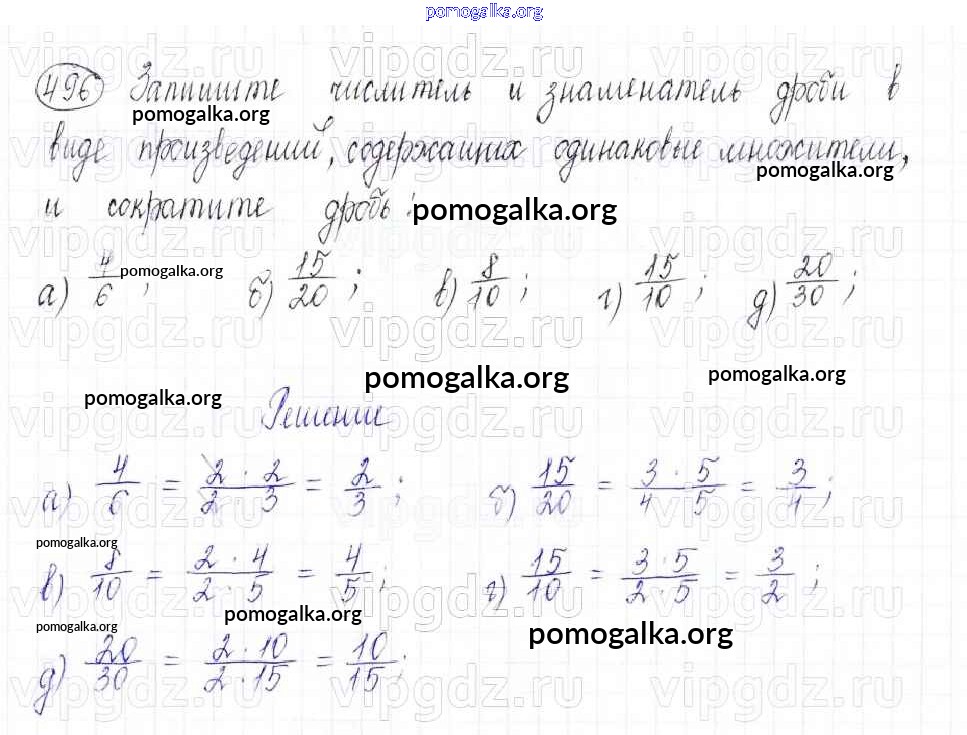 pomogalka.org
496 Запишите числитель и знаменатель дроби в
pomogalka.org
виде произведений, содержащих одинаковые множители,
pomogalka.org
и сократите дробь:
pomogalka.org
а) 4/6; б) 15/20; в) 8/10; г) 15/10; д) 20/30;
pomogalka.org
pomogalka.org
pomogalka.org
pomogalka.org
Решение
а) 4/6 = 2·2/2·3 = 2/3; б) 15/20 = 3·5/4·5 = 3/4;
pomogalka.org
в) 8/10 = 2·4/2·5 = 4/5; г) 15/10 = 3·5/2·5 = 3/2;
pomogalka.org
pomogalka.org
pomogalka.org
д) 20/30 = 2·10/2·15 = 10/15;
vipgdz.ru